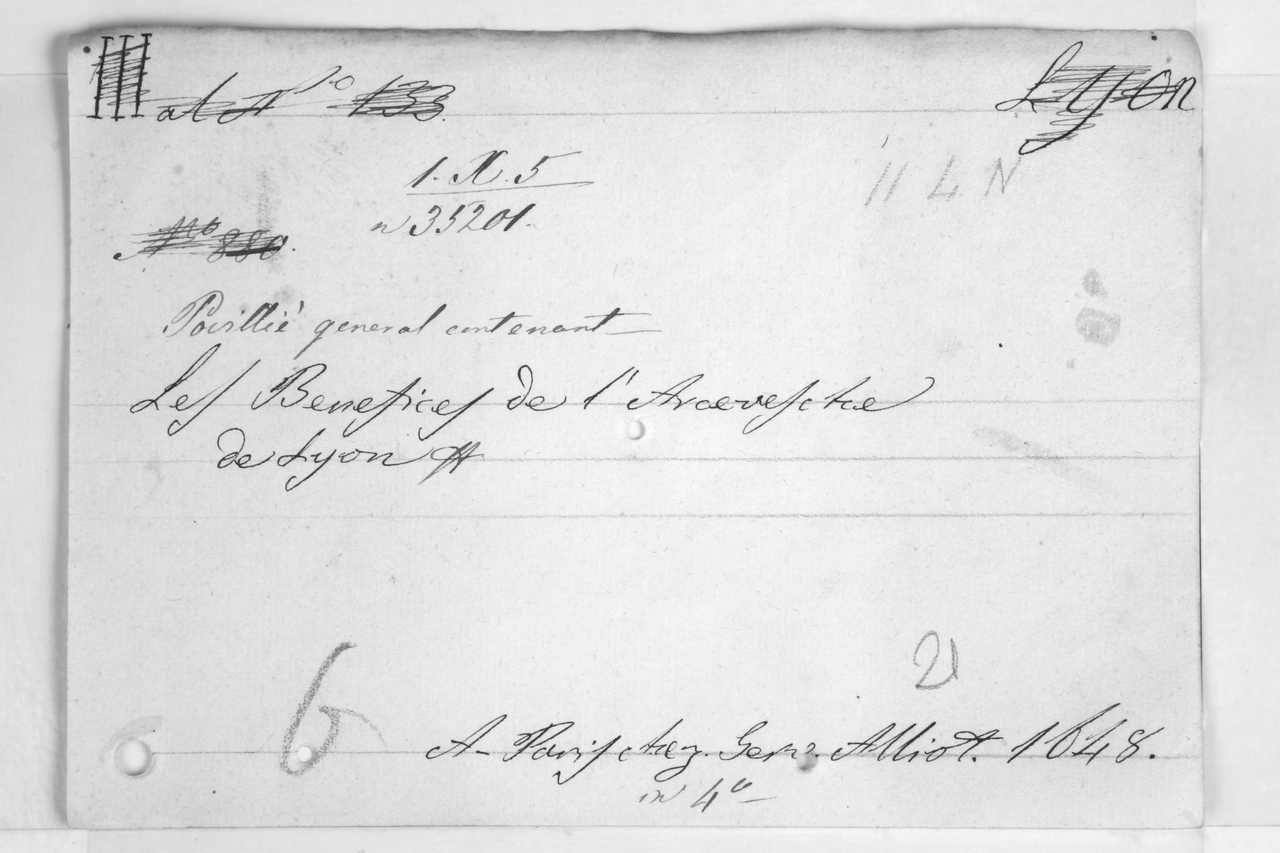 III al No 133 Lyon
1. X. 5
11 L N
n 35201.
No 880.
Poüillié general contenant
Les Benefices de l'Archevesche
de Lyon #
21
6
A Paris chez Gerv. Alliot. 1648.
in 4o